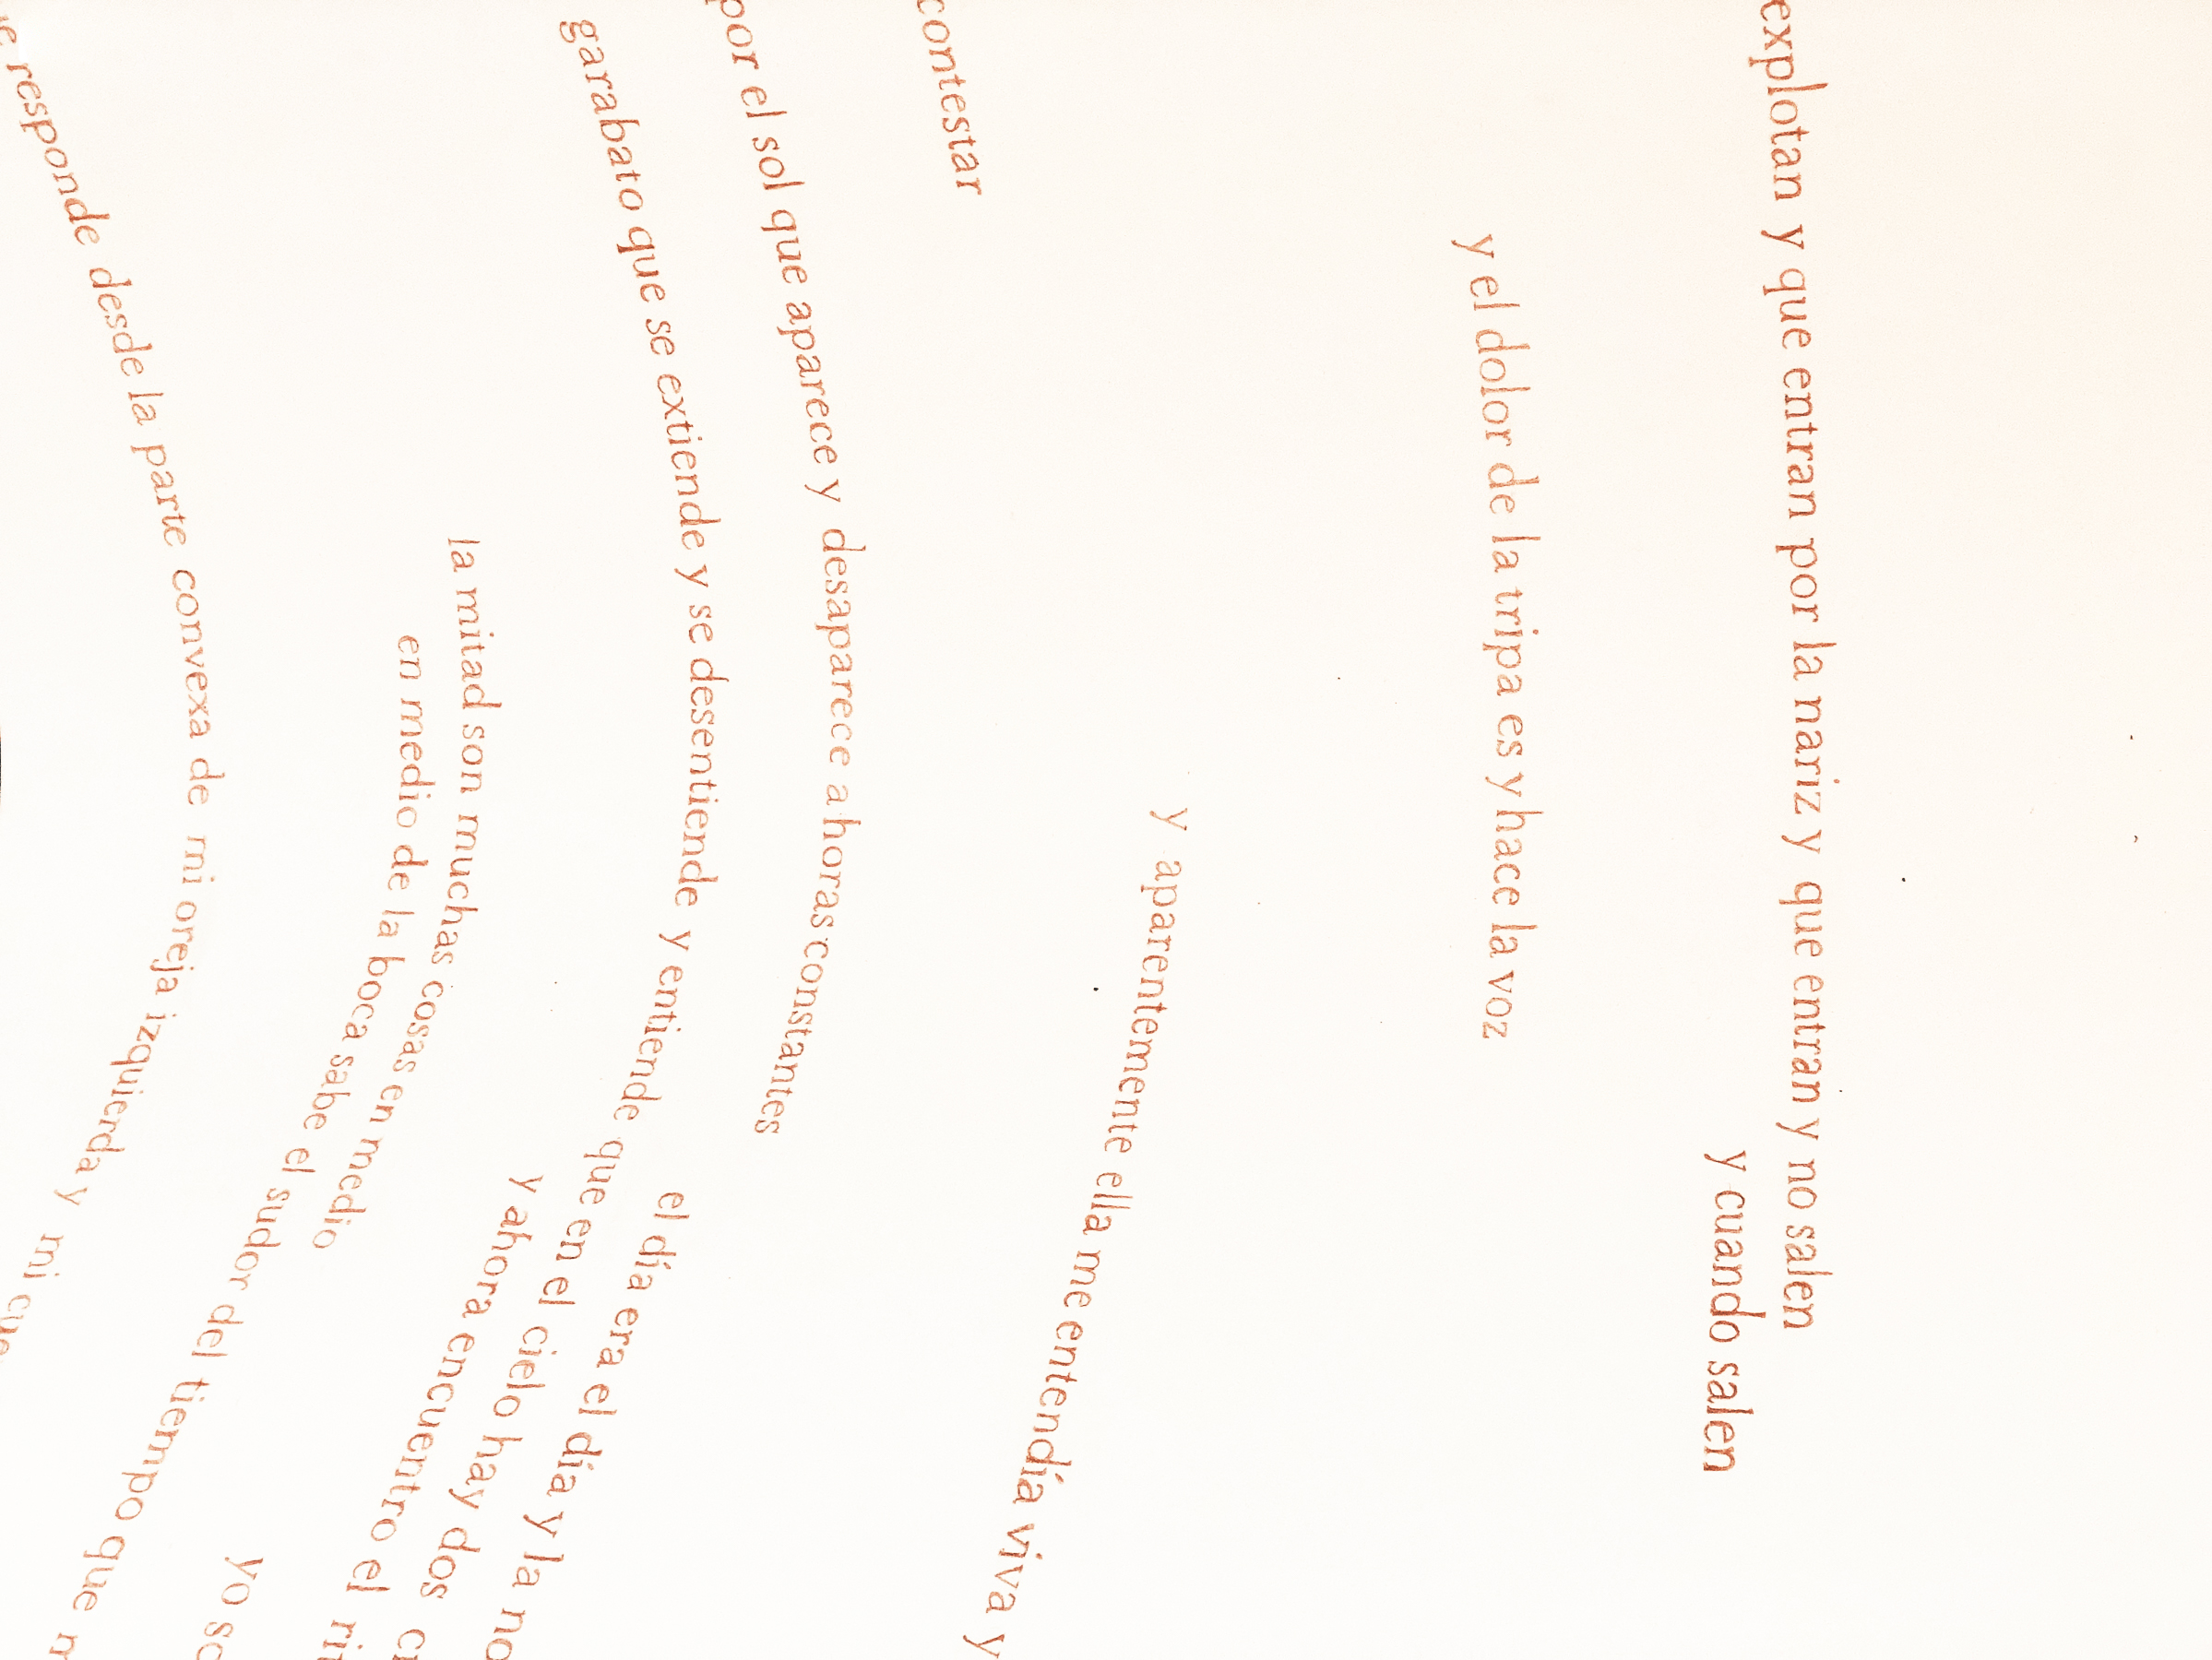 explotan y que entran por la nariz y que entran y no salen
y cuando salen
y el dolor de la tripa es y hace la voz
y aparentemente ella me entendía viva y
contestar
por el sol que aparece y desaparece ahoras constantes
el día era el día y la no
garabato que se extiende y se desentiende y entiende que en el cielo hay dos
y ahora encuentro el
la mitad son muchas cosas en medio
en medio de la boca sabe el sudor del tiempo que
yo so
responde desde la parte convexa de mi oreja izquierda y mi